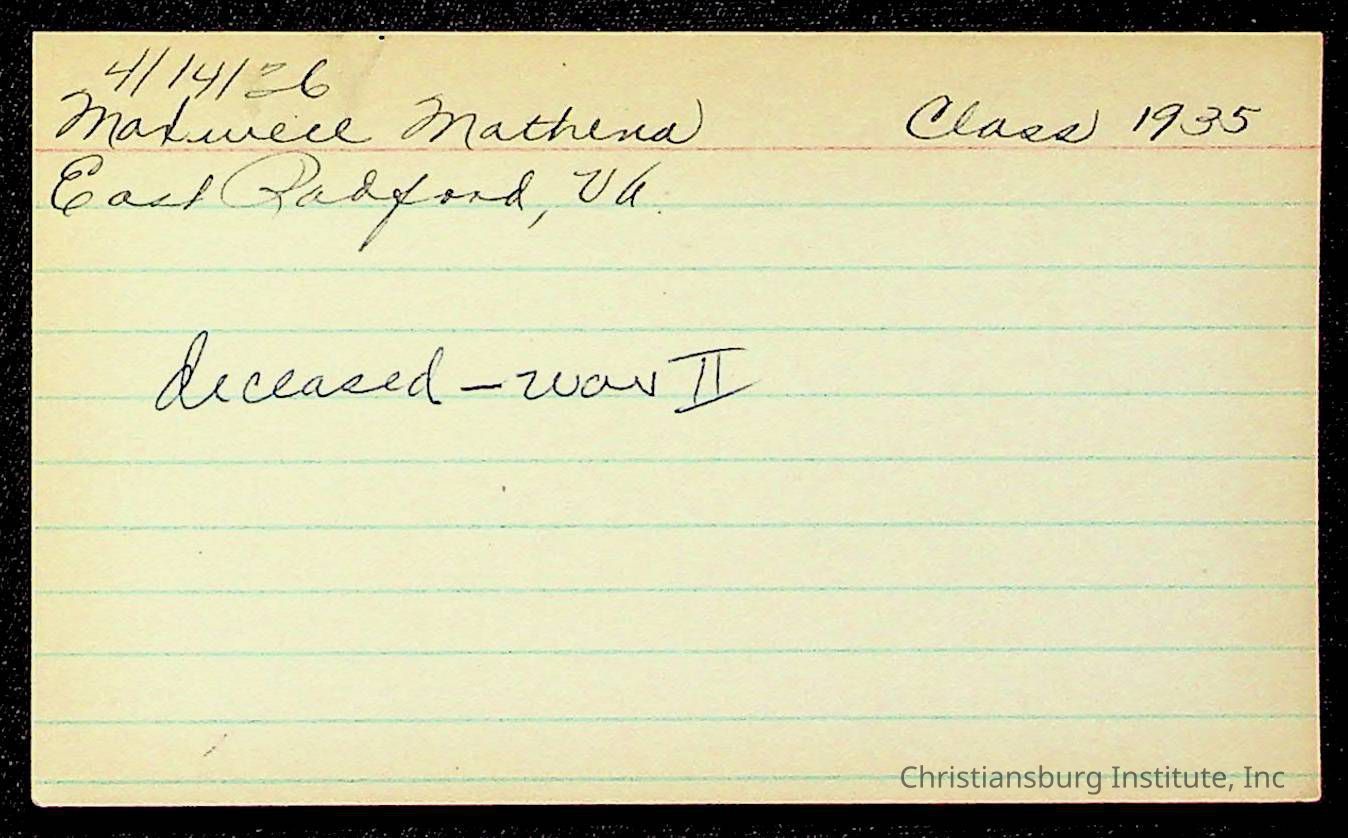 4/14/36
Maxwell Mathena Class 1935
East Radford, Va.
deceased – war II
Christiansburg Institute, Inc